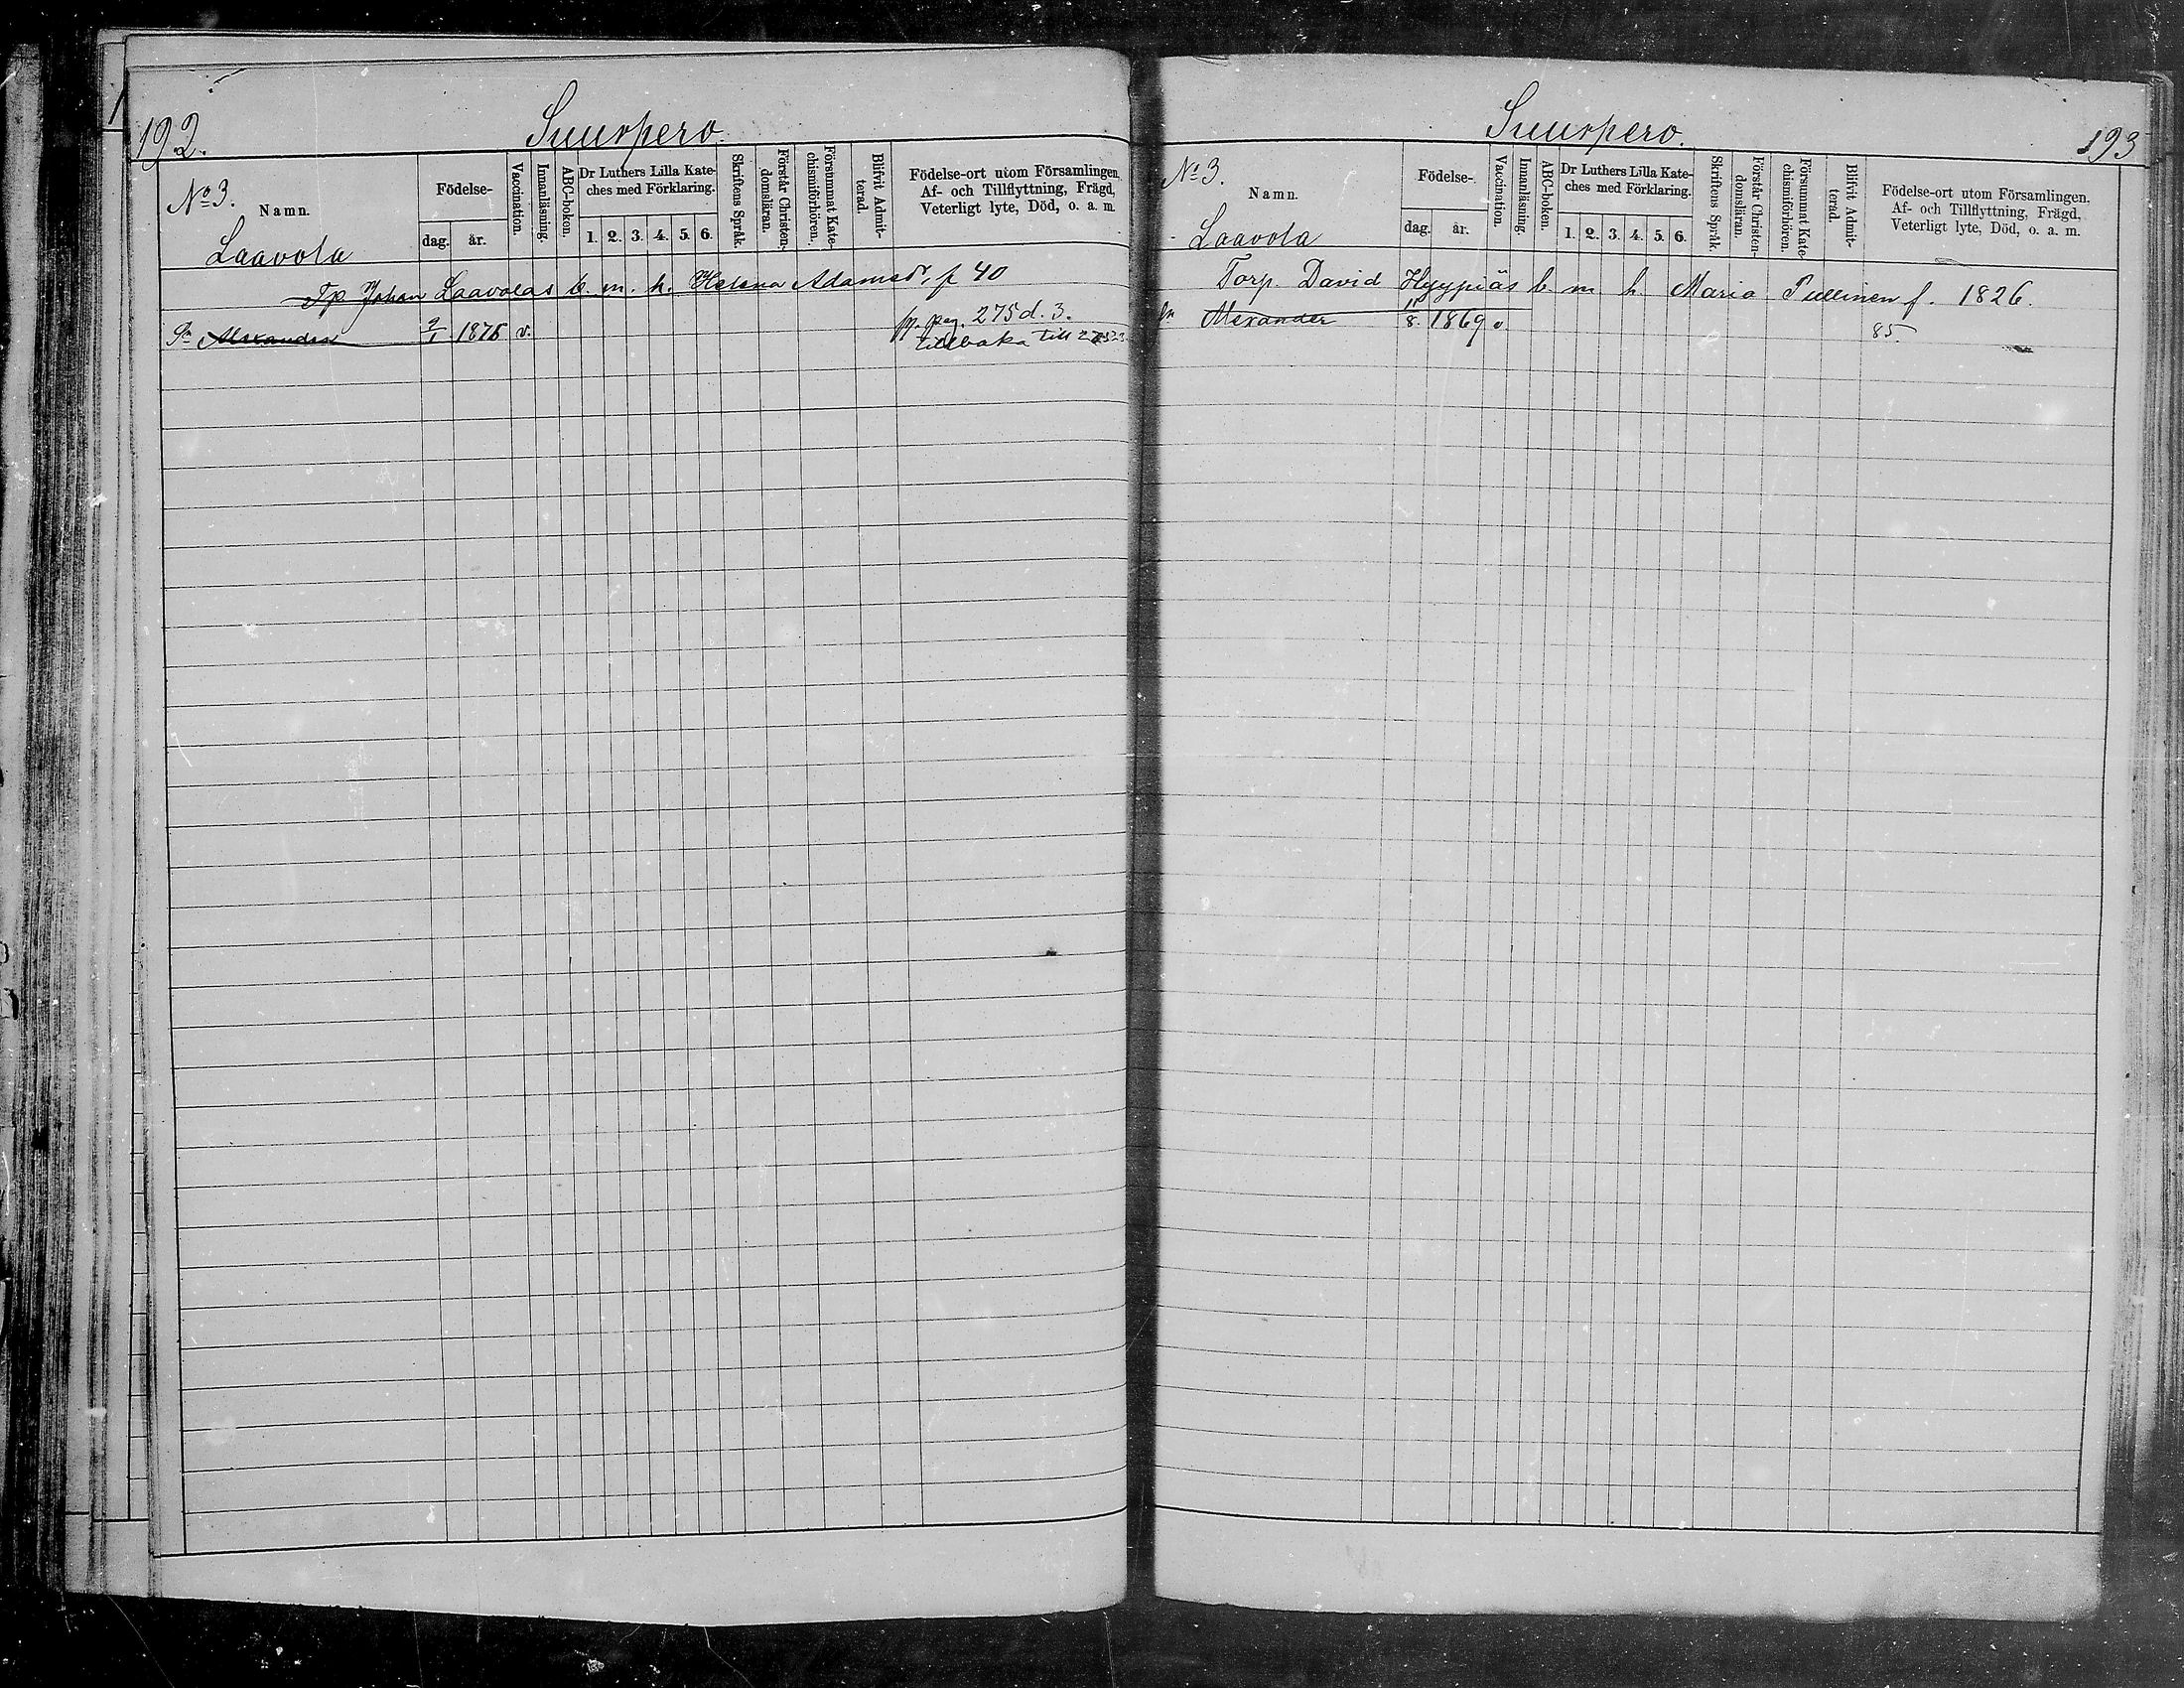 192.
Suurpero.
No 3.
Namn.
Födelse-
dag. år.
Vaccination.
Innanläsning.
ABC-boken.
Dr Luthers Lilla Kate-
ches med Förklaring.
1. 2. 3. 4. 5. 6.
Skriftens Språk.
Förstår Christen-
domsläran.
Försummat Kate-
chismiförhören.
Blifvit Admit-
terad.
Födelse-ort utom Församlingen,
Af- och Tillflyttning, Frägd,
Veterligt lyte, Död, o. a. m.
Laavola
Tp Johan Laavolas b. m. h. Helena Adamsdr, f 40
Sn Alexander 9/1 1876 v. fr. pag. 275 d. 3.
tillbaka till
Suurpero.
193
No 3.
Namn.
Födelse-
dag. år.
Vaccination.
Innanläsning.
ABC-boken.
Dr Luthers Lilla Kate-
ches med Förklaring.
1. 2. 3. 4. 5. 6.
Skriftens Språk.
Förstår Christen-
domsläran.
Försummat Kate-
chismiförhören.
Blifvit Admit-
terad.
Födelse-ort utom Församlingen,
Af- och Tillflyttning, Frägd,
Veterligt lyte, Död, o. a. m.
Laavola
Torp. David Hyypiäs b. m. h. Maria Pullinen f. 1826.
Sn Alexander 11/8. 1869 v 85.